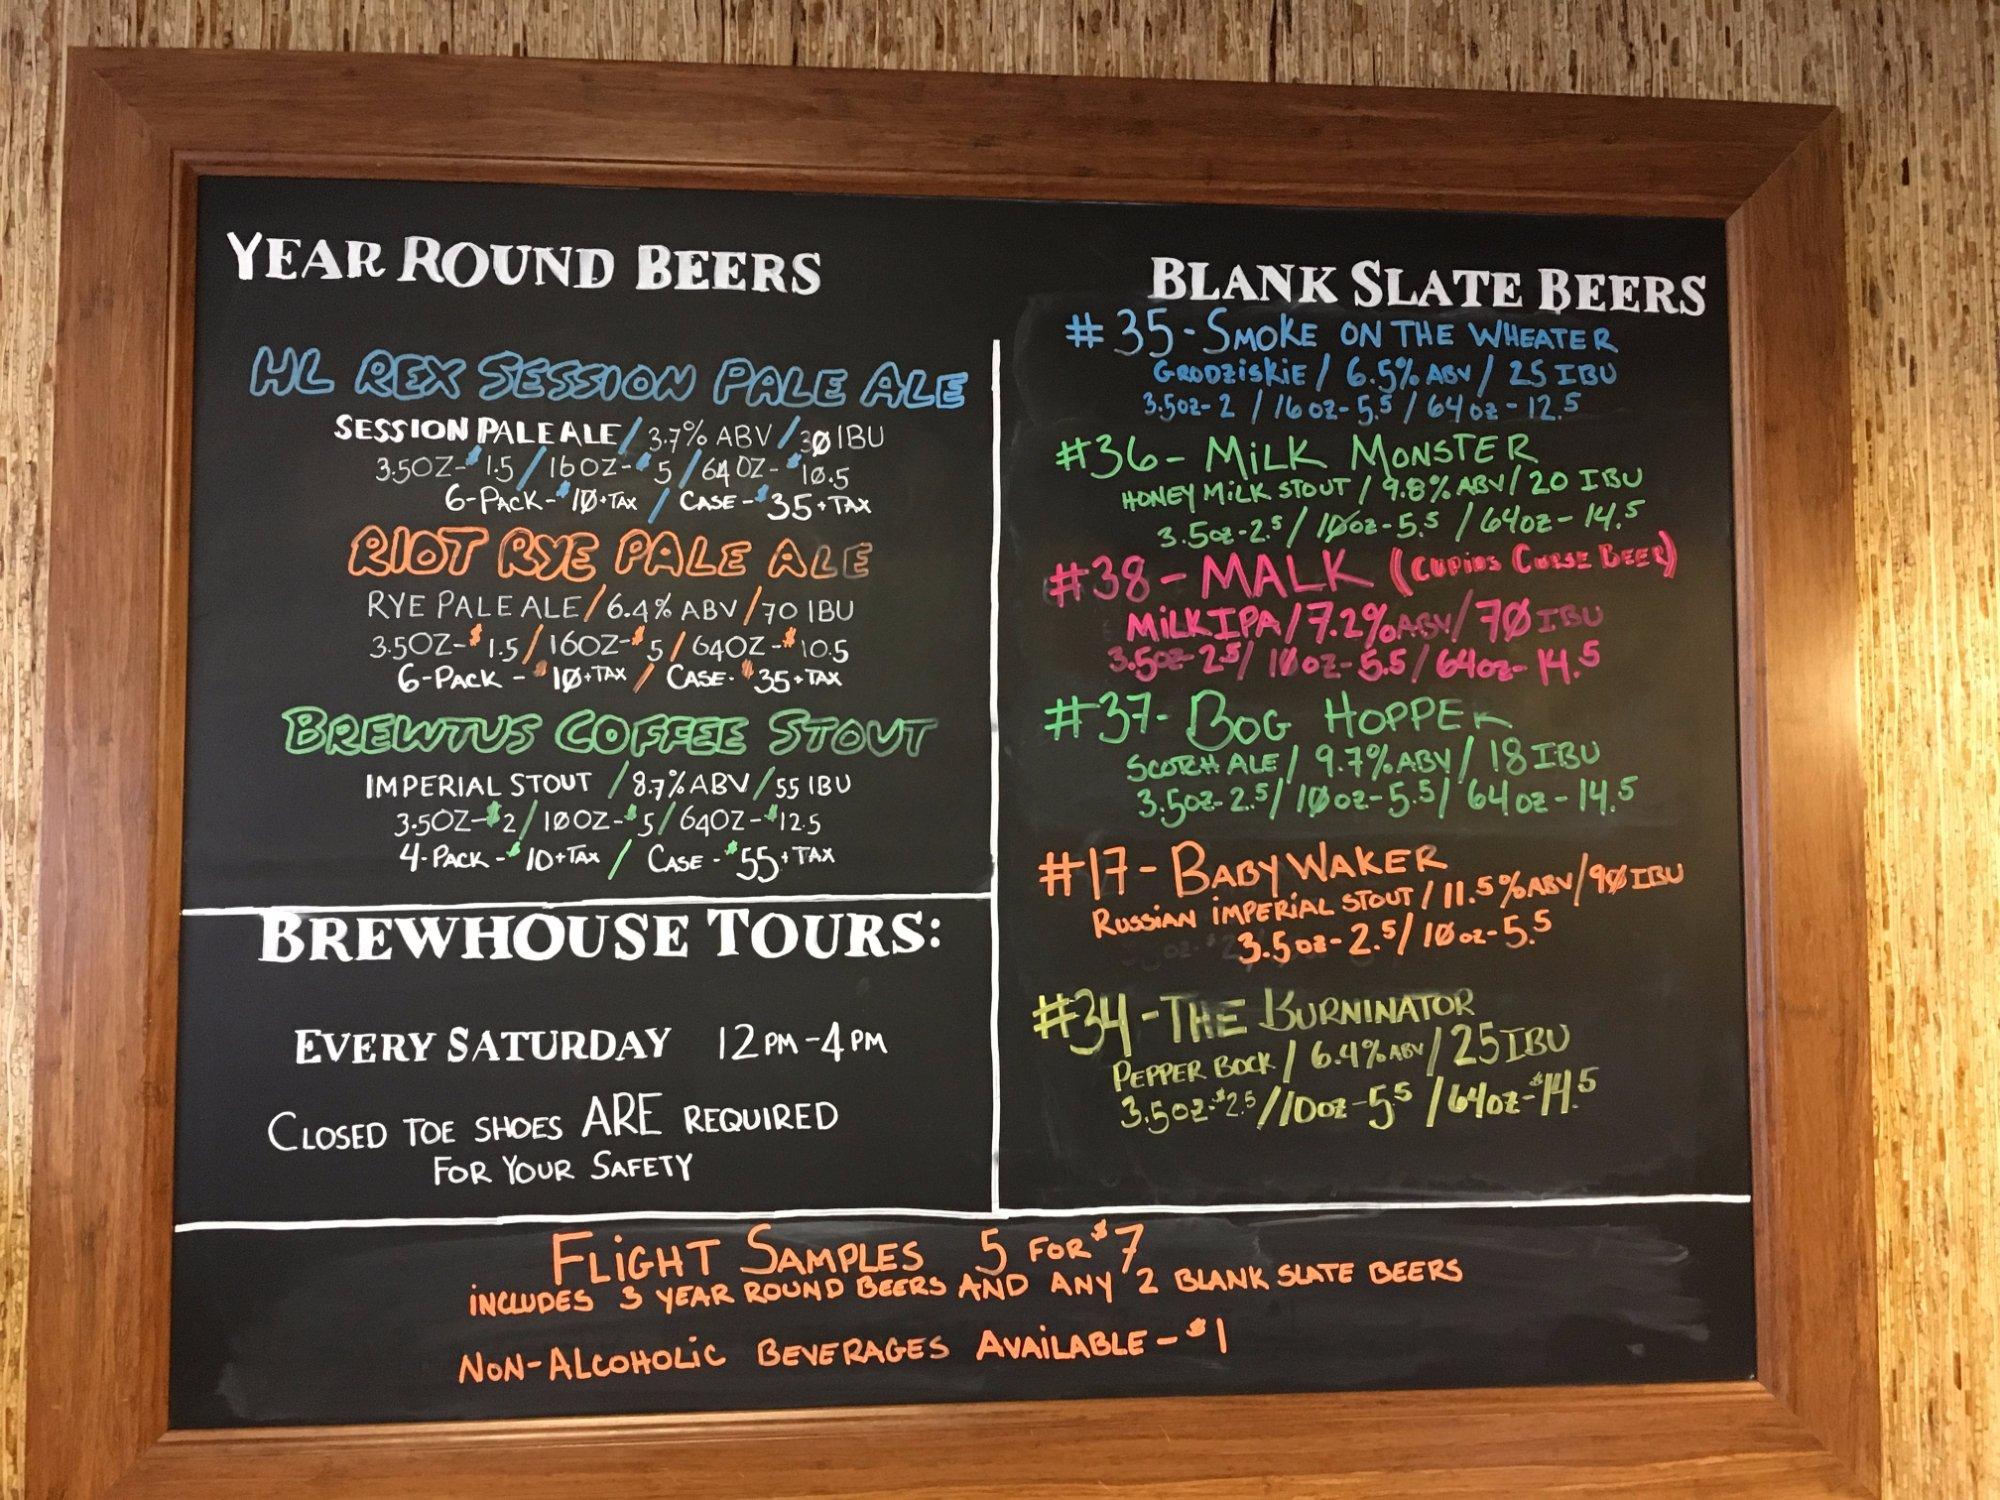 YEAR ROUND BEERS
HL REX SESSION PALE ALE
SESSION PALE ALE / 3.7% ABV / 30 IBU
3.5OZ-$1.5 / 16OZ-$5 / 64OZ-$10.5
6-PACK-$10+TAX / CASE-$35+TAX
RIOT RYE PALE ALE
RYE PALE ALE / 6.4% ABV / 70 IBU
3.5OZ-$1.5 / 16OZ-$5 / 64OZ-$10.5
6-PACK-$10+TAX / CASE-$35+TAX
BREWTUS COFFEE STOUT
IMPERIAL STOUT / 8.7% ABV / 55 IBU
3.5OZ-$2 / 10OZ-$5 / 64OZ-$12.5
4-PACK-$10+TAX / CASE-$55+TAX
BREWHOUSE TOURS:
EVERY SATURDAY 12PM-4PM
CLOSED TOE SHOES ARE REQUIRED
FOR YOUR SAFETY
BLANK SLATE BEERS
#35-SMOKE ON THE WHEATER
GRODZISKIE / 6.5% ABV / 25 IBU
3.5OZ-2 / 16OZ-5.5 / 64OZ-12.5
#36-MILK MONSTER
HONEY MILK STOUT / 9.8% ABV / 20 IBU
3.5OZ-2.5 / 10OZ-5.5 / 64OZ-14.5
#38-MALK (CUPIDS CURSE BEER)
MILK IPA / 7.2% ABV / 70 IBU
3.5OZ-2.5 / 10OZ-5.5 / 64OZ-14.5
#37-BOG HOPPER
SCOTCH ALE / 9.7% ABV / 18 IBU
3.5OZ-2.5 / 10OZ-5.5 / 64OZ-14.5
#17-BABY WAKER
RUSSIAN IMPERIAL STOUT / 11.5% ABV / 90 IBU
3.5OZ-2.5 / 10OZ-5.5
#34-THE BURNINATOR
PEPPER BOCK / 6.4% ABV / 25 IBU
3.5OZ-$2.5 / 10OZ-5.5 / 64OZ-$14.5
FLIGHT SAMPLES 5 FOR $7
INCLUDES 3 YEAR ROUND BEERS AND ANY 2 BLANK SLATE BEERS
NON-ALCOHOLIC BEVERAGES AVAILABLE-$1